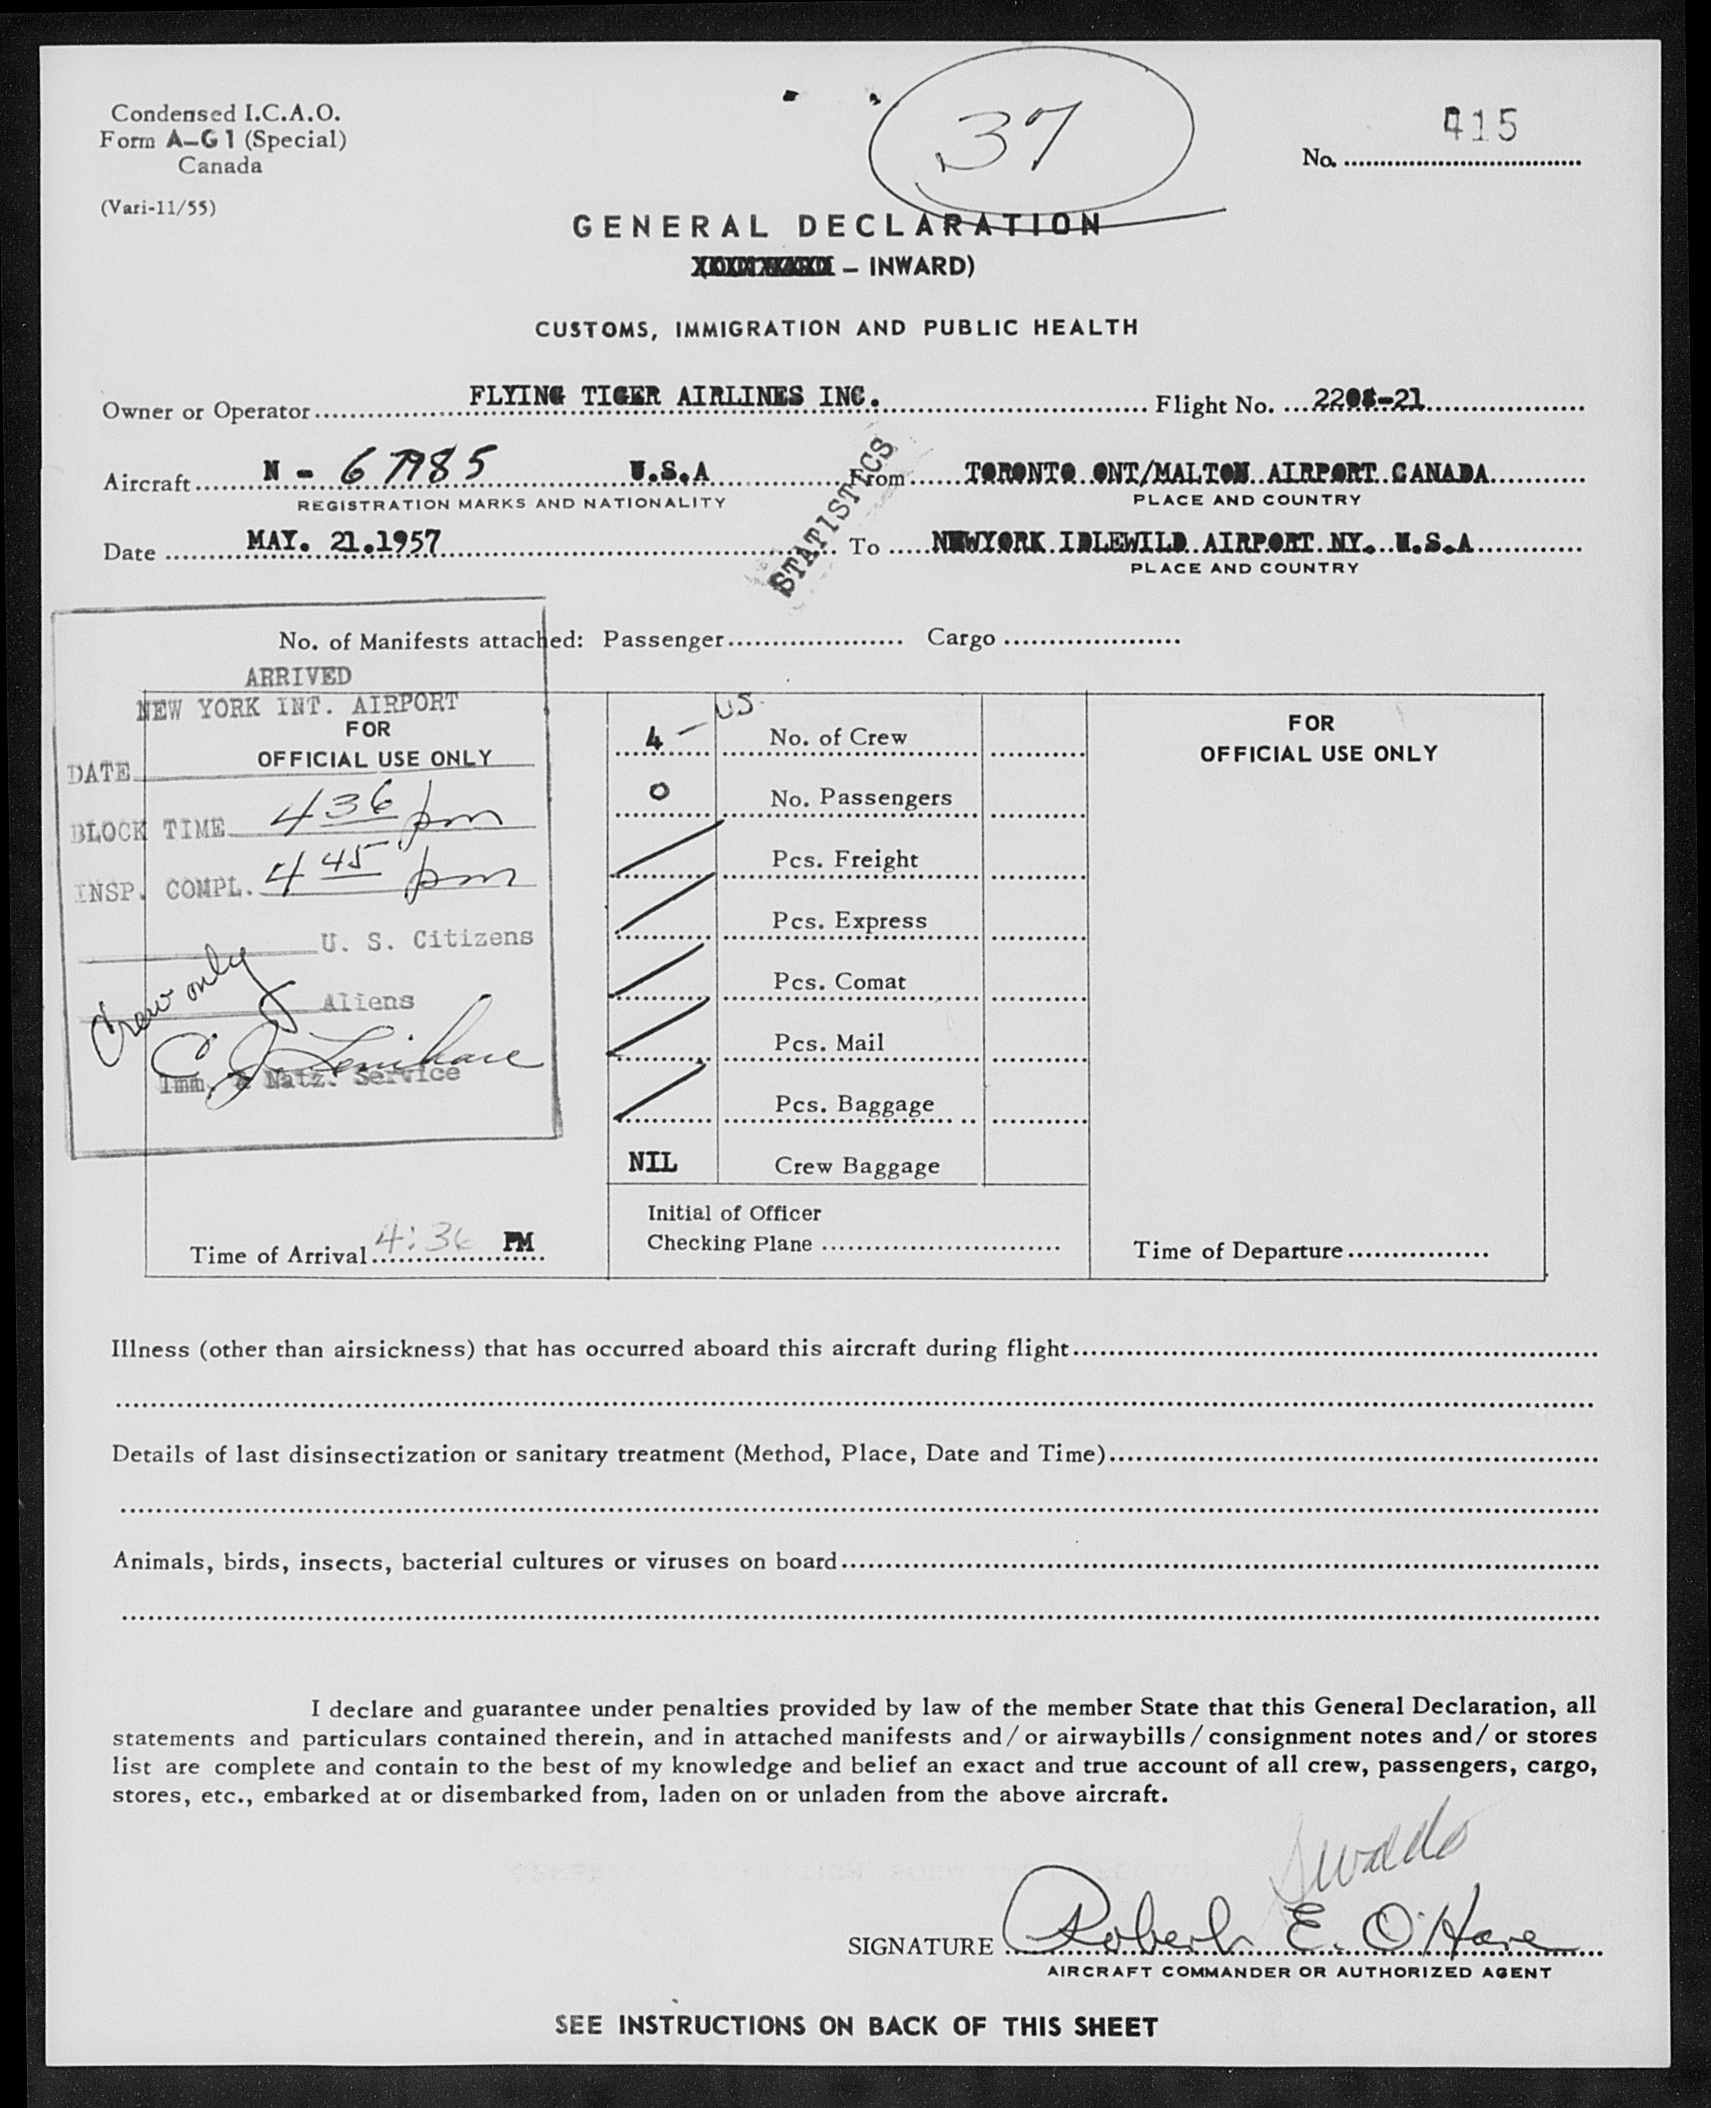 Condensed I.C.A.O.
Form A-G1 (Special)
Canada
(Vari-11/55)
37
No. 415
GENERAL DECLARATION
– INWARD)
CUSTOMS, IMMIGRATION AND PUBLIC HEALTH
Owner or Operator FLYING TIGER AIRLINES INC. Flight No. 2208-21
Aircraft N - 67985 U.S.A From TORONTO ONT/MALTON AIRPORT CANADA
REGISTRATION MARKS AND NATIONALITY PLACE AND COUNTRY
STATISTICS
Date MAY. 21.1957 To NEWYORK IDLEWILD AIRPORT NY. U.S.A
PLACE AND COUNTRY
No. of Manifests attached: Passenger Cargo
ARRIVED
NEW YORK INT. AIRPORT
FOR
OFFICIAL USE ONLY
DATE
BLOCK TIME 436 pm
INSP. COMPL. 445 pm
U. S. Citizens
Crew only
Aliens
Imm. & Natz. Service
Time of Arrival 4:36 PM
4 - US No. of Crew
0 No. Passengers
Pcs. Freight
Pcs. Express
Pcs. Comat
Pcs. Mail
Pcs. Baggage
NIL Crew Baggage
Initial of Officer
Checking Plane
FOR
OFFICIAL USE ONLY
Time of Departure
Illness (other than airsickness) that has occurred aboard this aircraft during flight
Details of last disinsectization or sanitary treatment (Method, Place, Date and Time)
Animals, birds, insects, bacterial cultures or viruses on board
I declare and guarantee under penalties provided by law of the member State that this General Declaration, all
statements and particulars contained therein, and in attached manifests and/or airwaybills/consignment notes and/or stores
list are complete and contain to the best of my knowledge and belief an exact and true account of all crew, passengers, cargo,
stores, etc., embarked at or disembarked from, laden on or unladen from the above aircraft.
SIGNATURE Robert E. O'Hare
AIRCRAFT COMMANDER OR AUTHORIZED AGENT
SEE INSTRUCTIONS ON BACK OF THIS SHEET